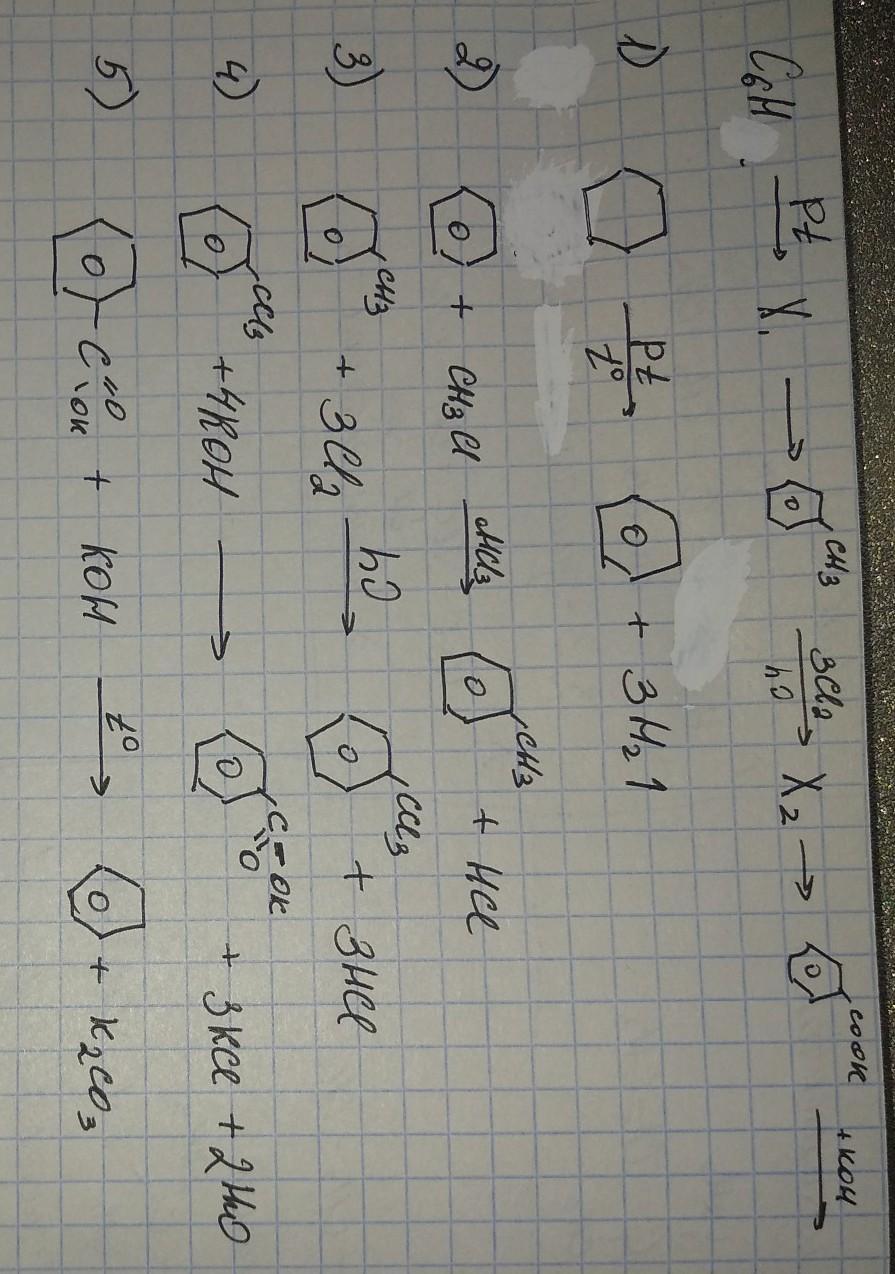 C₆H → Pt X₁ → CH₃ 3Cl₂ hν → X₂ → COOK +KOH →
1) Pt t° → + 3H₂↑
2) + CH₃Cl AlCl₃ → CH₃ + HCl
3) CH₃ + 3Cl₂ hν → CCl₃ + 3HCl
4) CCl₃ + 4KOH → C-OK =O + 3KCl + 2H₂O
5) C=O -OK + KOH t° → + K₂CO₃